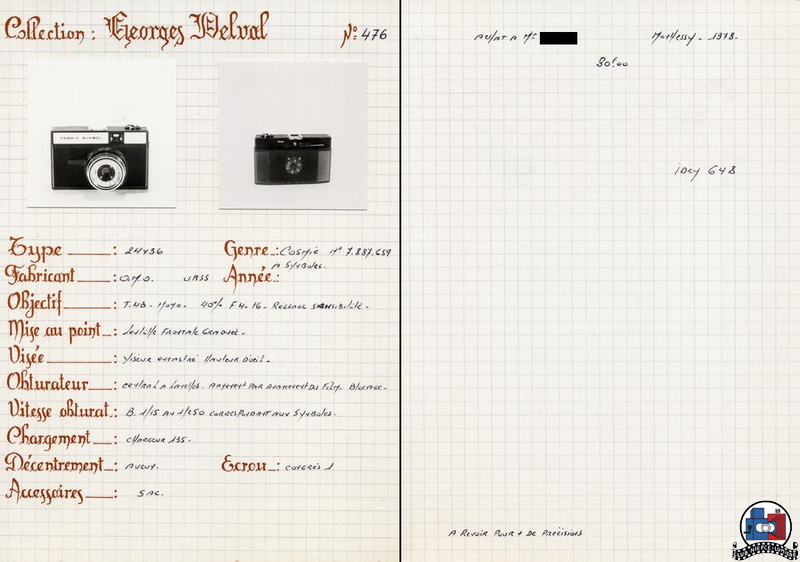 Collection : Georges Delval N° 476
COSMIC SYMBOL
Type : 24x36
Genre : Cosmic N° 7.887.659
A Symboles.
Fabricant : O.M.O. URSS
Année :
Objectif : T.43. 40 F 4.16. Réglage sensibilité.
Mise au point : Lentille Frontale Graduée.
Visée : Viseur Hauteur D'oeil.
Obturateur : Central A Lamelles. Armement Par Avancement Du Film. Blocage.
Vitesse obturat : B. 1/15 Au 1/250 correspondant aux Symboles.
Chargement : chargeur 135.
Décentrement : Aucun.
Ecrou : congrès 1
Accessoires : SAC.
Achat A Mr 1978.
80f.00
iDcy 648
A Revoir Pour + De Précisions